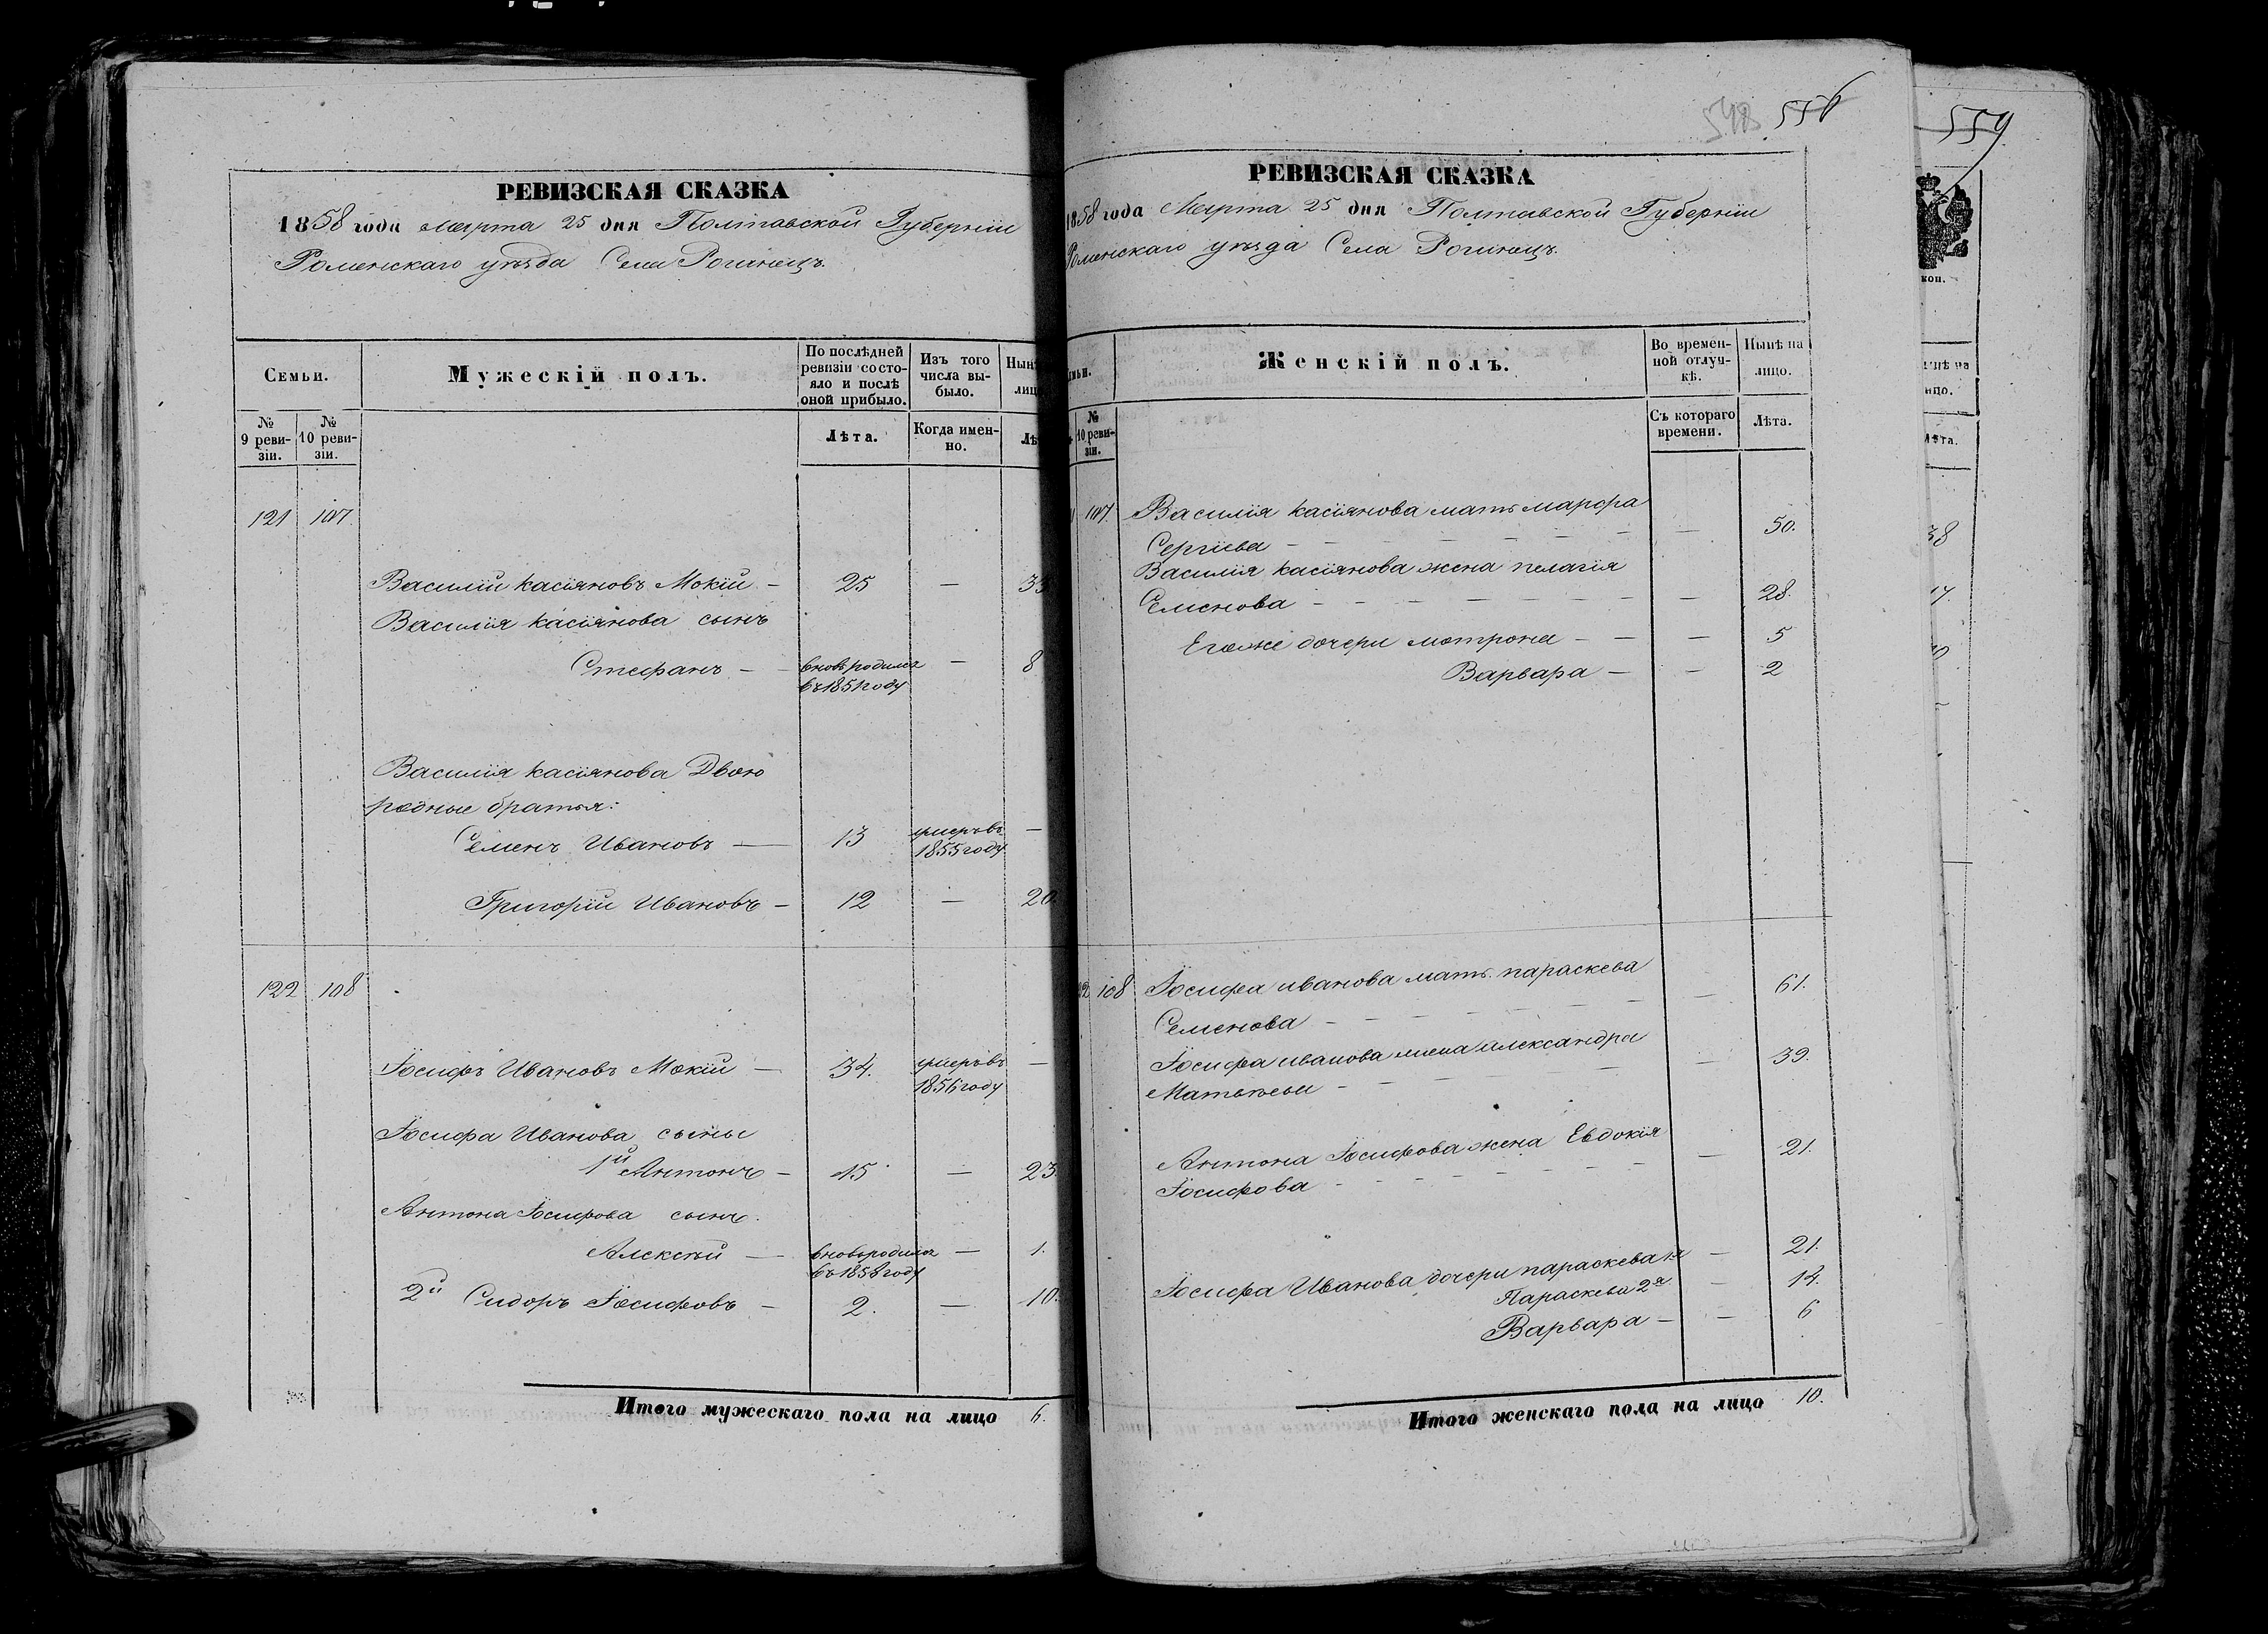 РЕВИЗСКАЯ СКАЗКА
1858 года Марта 25 дня Полтавской Губерніи
Роменскаго уѣзда Села Рогинецъ.
Семьи.
Мужескій полъ.
По послѣдней ревизіи состояло и послѣ оной прибыло.
Изъ того числа выбыло.
№ 9 ревизіи.
№ 10 ревизіи.
Лѣта.
Когда именно.
121 107.
Василій касіяновъ Мокій — 25 —
Василія касіянова сынъ
Стефанъ — вновь родился — 8
въ 1851 году
Василія касіянова Двою
родные братья:
Семенъ Ивановъ — 13 умеръ въ —
1855 году
Григорій Ивановъ — 12 — 20.
122 108
Іосифъ Ивановъ Мокій — 34. умеръ въ —
1856 году
Іосифа Иванова сыны
1й Антонъ — 15 — 23.
Антона Іосифова сынъ.
Алексѣй — вновь родился — 1.
въ 1858 году
2й Сидоръ Іосифовъ — 2. — 10.
Итого мужескаго пола на лицо 6.
548 556
РЕВИЗСКАЯ СКАЗКА
1858 года Марта 25 дня Полтавской Губерніи
Роменскаго уѣзда Села Рогинецъ.
Женскій полъ.
Во временной отлучкѣ.
Нынѣ на лицо.
№ 10 ревизіи.
Съ котораго времени.
Лѣта.
107. Василія касіянова мать марфа
Сергіева — — 50.
Василія касіянова жена пелагія
Семенова — — 28.
Егоже дочери мотрона — — 5
Варвара — — 2
108 Іосифа иванова мать параскева
Семенова — — 61.
Іосифа иванова жена александра
Матвѣева — — 39.
Антона Іосифова жена Евдокія
Іосифова — — 21.
Іосифа Иванова дочери параскева 1я — 21.
Параскева 2я — 14.
Варвара — — 6
Итого женскаго пола на лицо 10.
559
коп.
38
17.